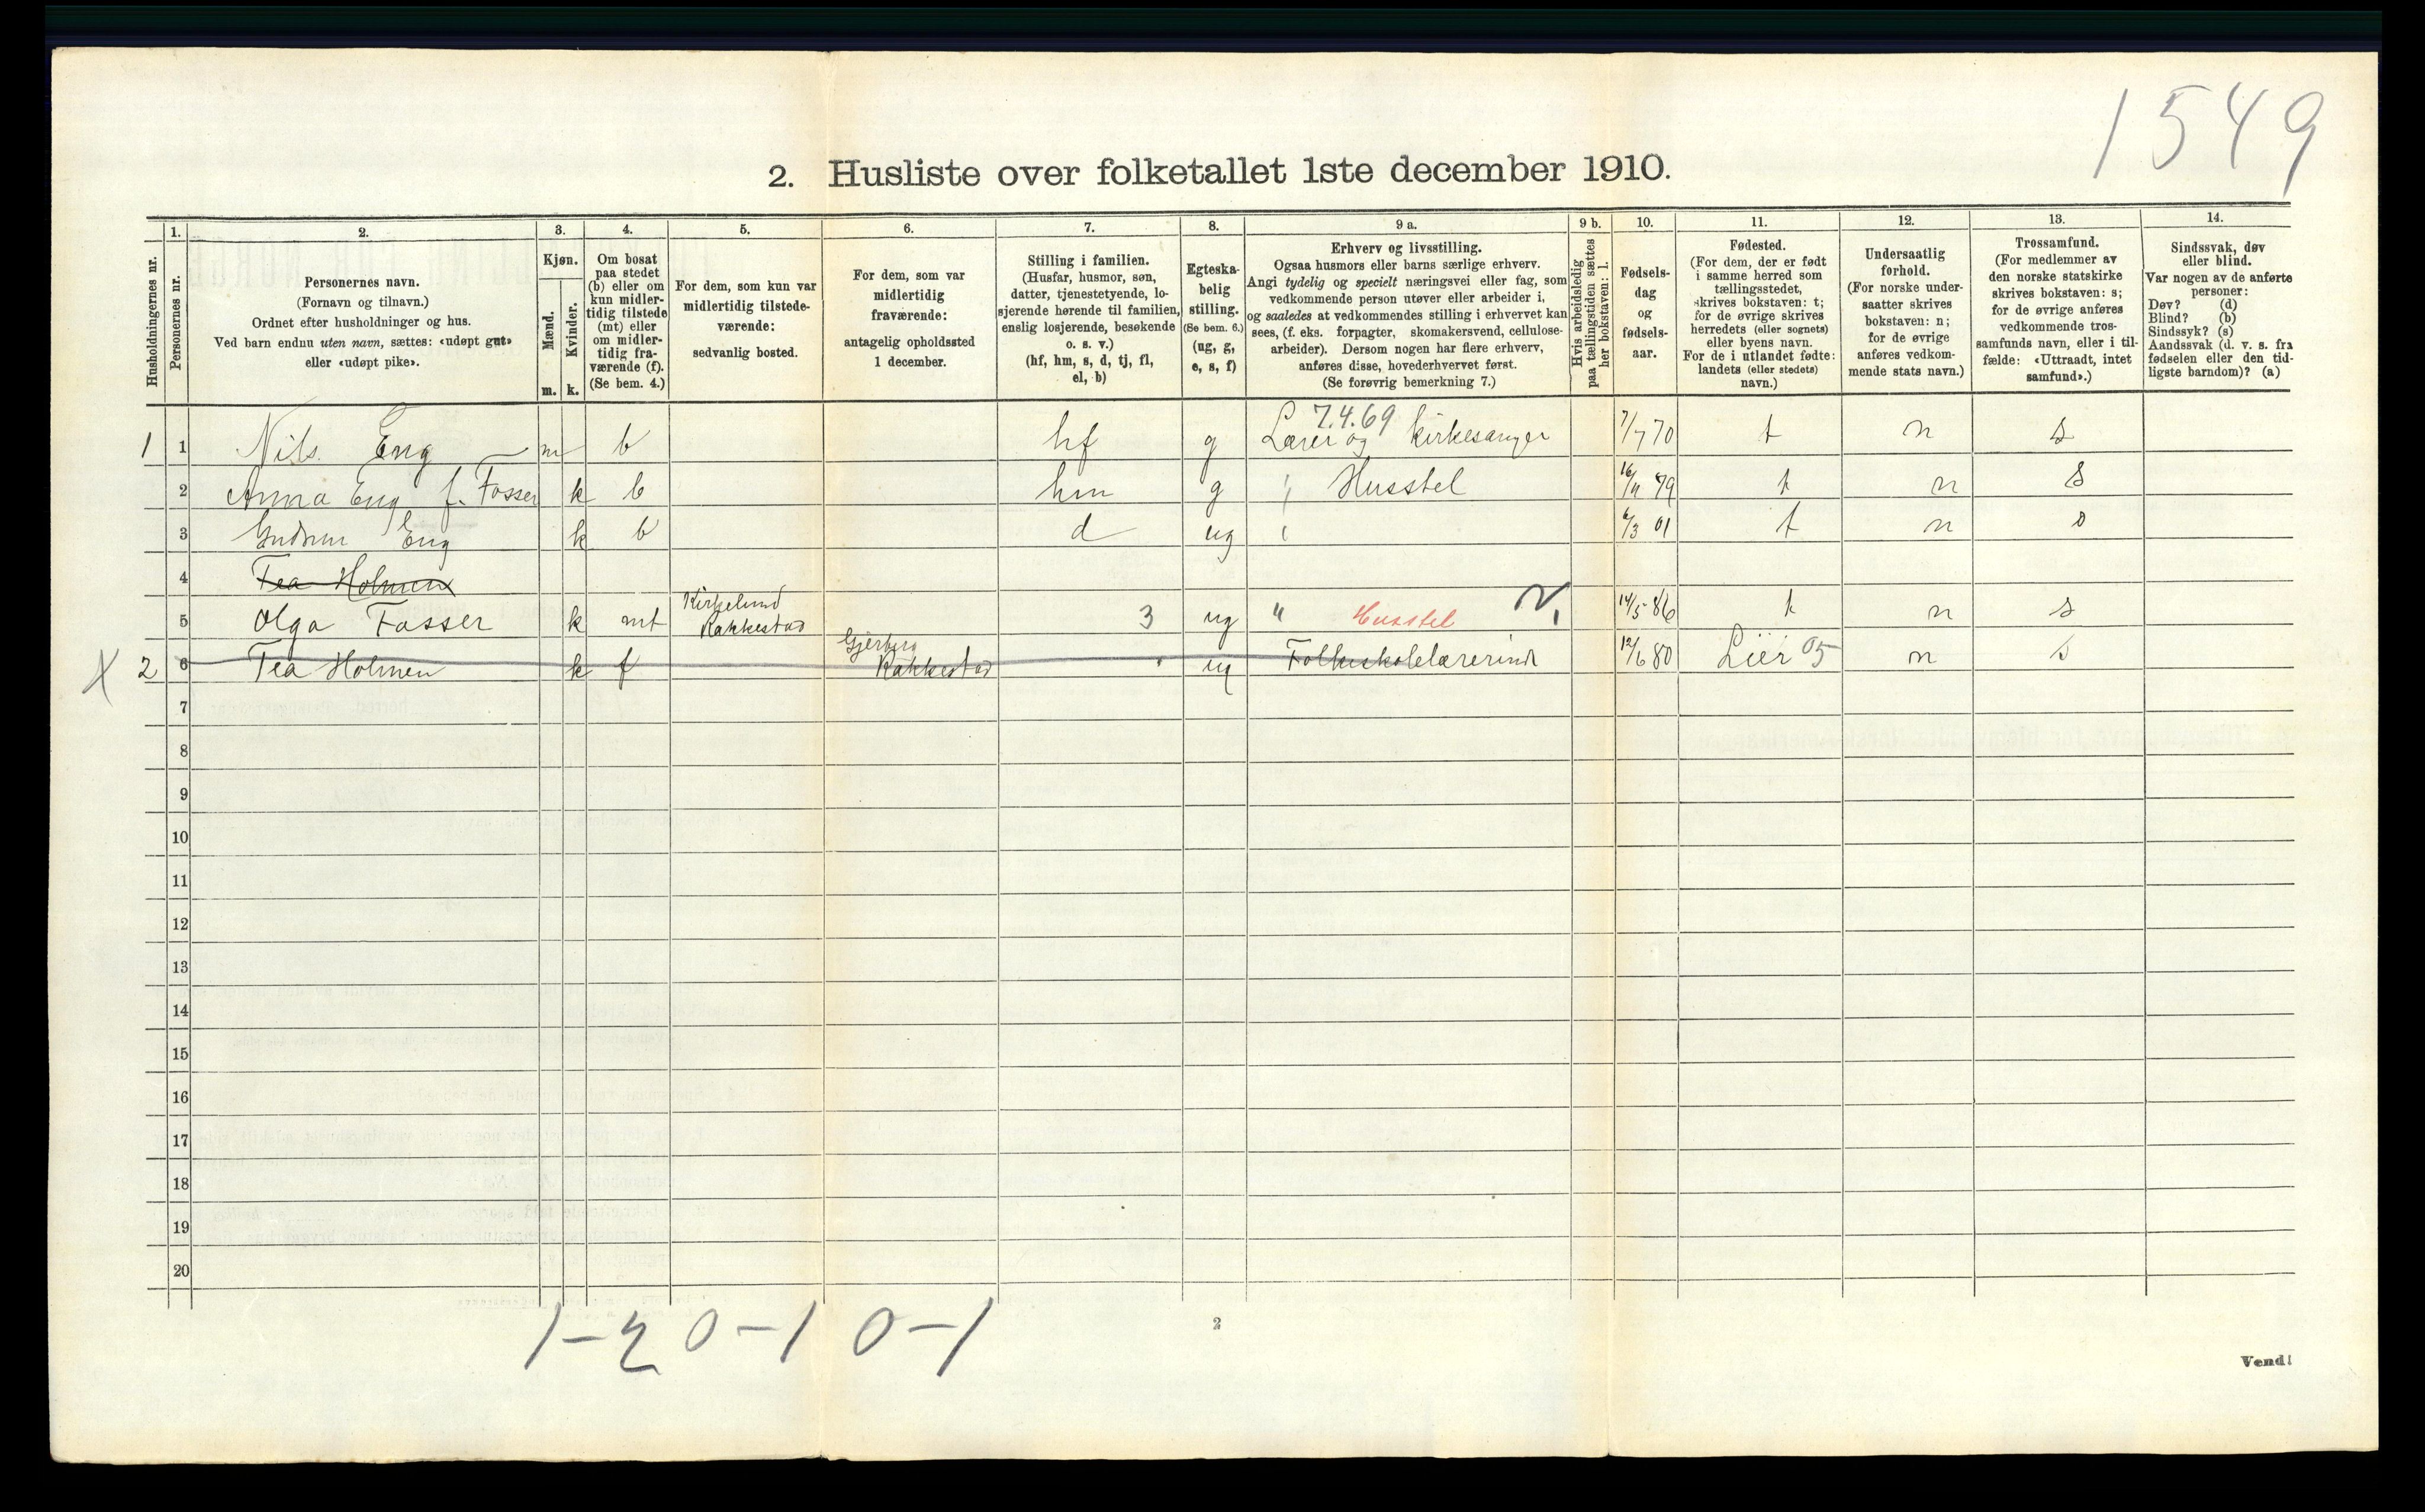 1549
2. Husliste over folketallet 1ste december 1910.
Husholdningernes nr.
1.
Personernes nr.
2.
Personernes navn.
(Fornavn og tilnavn.)
Ordnet efter husholdninger og hus.
Ved barn endnu uten navn, sættes: «udøpt gut»
eller «udøpt pike».
3.
Kjøn.
Mænd.
Kvinder.
m. k.
4.
Om bosat
paa stedet
(b) eller om
kun midler-
tidig tilstede
(mt) eller
om midler-
tidig fra-
værende (f).
(Se bem. 4.)
5.
For dem, som kun var
midlertidig tilstede-
værende:
sedvanlig bosted.
6.
For dem, som var
midlertidig
fraværende:
antagelig opholdssted
1 december.
7.
Stilling i familien.
(Husfar, husmor, søn,
datter, tjenestetyende, lo-
sjerende hørende til familien,
enslig losjerende, besøkende
o. s. v.)
(hf, hm, s, d, tj, fl,
el, b)
8.
Egteska-
belig
stilling.
(Se bem. 6.)
(ug, g,
e, s, f)
9 a.
Erhverv og livsstilling.
Ogsaa husmors eller barns særlige erhverv.
Angi tydelig og specielt næringsvei eller fag, som
vedkommende person utøver eller arbeider i,
og saaledes at vedkommendes stilling i erhvervet kan
sees, (f. eks. forpagter, skomakersvend, cellulose-
arbeider). Dersom nogen har flere erhverv,
anføres disse, hovederhvervet først.
(Se forøvrig bemerkning 7.)
9 b.
Hvis arbeidsledig
paa tællingstiden sættes
her bokstaven: l.
10.
Fødsels-
dag
og
fødsels-
aar.
11.
Fødested.
(For dem, der er født
i samme herred som
tællingsstedet,
skrives bokstaven: t;
for de øvrige skrives
herredets (eller sognets)
eller byens navn.
For de i utlandet fødte:
landets (eller stedets)
navn.)
12.
Undersaatlig
forhold.
(For norske under-
saatter skrives
bokstaven: n;
for de øvrige
anføres vedkom-
mende stats navn.)
13.
Trossamfund.
(For medlemmer av
den norske statskirke
skrives bokstaven: s;
for de øvrige anføres
vedkommende tros-
samfunds navn, eller i til-
fælde: «Uttraadt, intet
samfund».)
14.
Sindssvak, døv
eller blind.
Var nogen av de anførte
personer:
Døv? (d)
Blind? (b)
Sindssyk? (s)
Aandssvak (d. v. s. fra
fødselen eller den tid-
ligste barndom)? (a)
7.4.69
1 1 Nils Eng m b hf g Lærer og kirkesanger 7/7 70 t n s
2 Anna Eng f. Fosser k b hm g Husstel 16/11 79 t n s
3 Gudrun Eng k b d ug 6/3 01 t n s
4 Tea Holmen
5 Olga Fosser k mt Kirkelund Rakkestad 3 ug " Husstel 14/5 86 t n s
X 2 6 Tea Holmen k f Rakkestad ug Folkeskolelærerinde 12/6 80 Lier 05 n s
7
8
9
10
11
12
13
14
15
16
17
18
19
20
1-2 0-1 0-1
2
Vend!